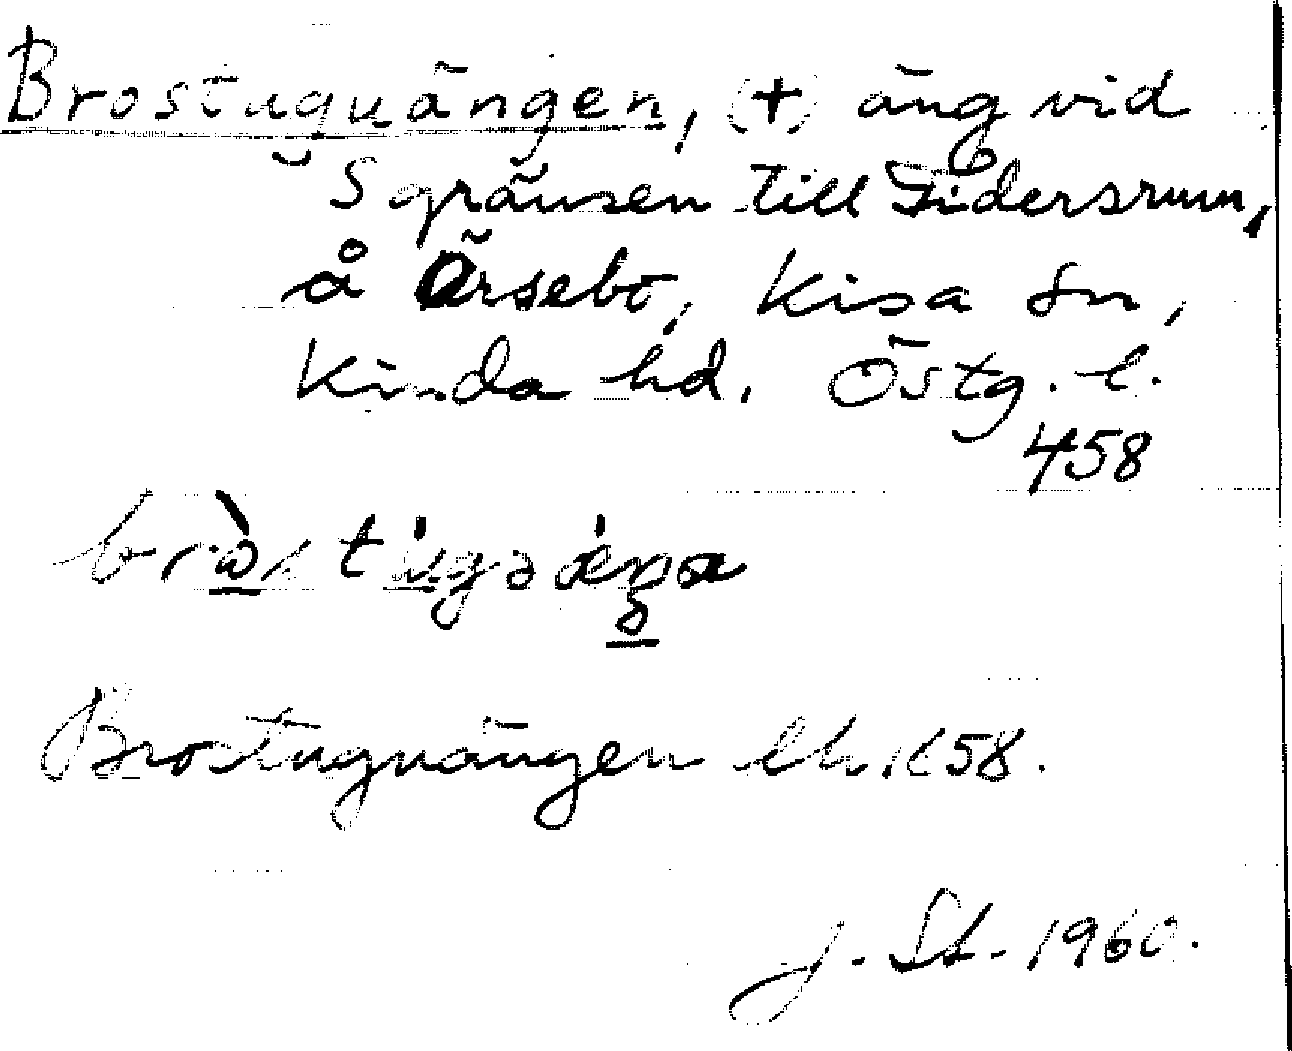 Brostuguängen, (+) äng vid
S gränsen till Tidersrum,
å Örsebo, Kisa sn,
Kinda hd. Östg. l.
458
Brostuguängen lh. 1658.
J. St. 1960.